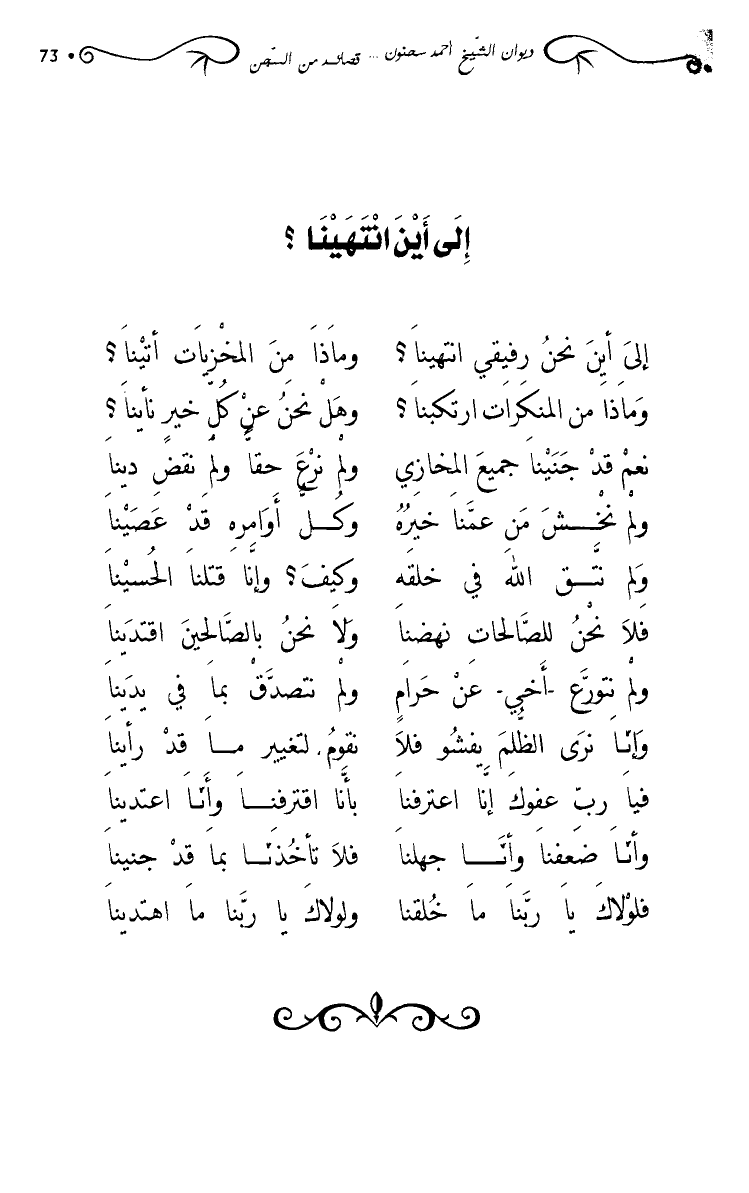 ديوان الشّيخ أحمد سحنون ... قصائد من السّجن 73
إِلَى أَيْنَ انْتَهَيْنَا ؟
إلىَ أينَ نحنُ رفيقي انتهيناَ؟ وماَذاَ مِنَ المخْزيات أتيْناَ؟
وَماَذَا من المنكرات ارتكبناَ؟ وهَلْ نحنُ عنْ كُلِّ خيرٍ نأيناَ؟
نعمْ قدْ جَنَيْناَ جميعَ المخازي ولمْ نرْعَ حقاًّ ولمْ نقضِ ديناَ
ولمْ نخْـشَ مَن عمَّناَ خيرُهُ وكُـلُّ أَوَامِرِهِ قَدْ عَصَيْناَ
وَلم نتَّـق اللهَ في خلقه وكيفَ؟ وإنَّا قتلناَ الحُسيْناَ
فلاَ نحْنُ للصَّالحات نهضناَ وَلاَ نحنُ بالصَّالحينَ اقتدَيناَ
ولمْ نتورَّع -أُخيّ- عنْ حَرامٍ ولمْ نتصدَّقْ بماَ في يدَيناَ
وَإنّـاَ نرَى الظُّلمَ يفشُو فلاَ نقومُ لتغيير مـاَ قدْ رأيناَ
فياَ ربّ عفوكَ إنَّا اعترفناَ بأنَّا اقترفنـاَ وأنّـاَ اعتديناَ
وأنّـاَ ضَعفناَ وأنَّـاَ جهلناَ فلاَ تأخُذنّـاَ بماَ قدْ جنيناَ
فلوْلاكَ ياَ ربَّناَ ماَ خُلقناَ ولولاكَ ياَ ربَّناَ ماَ اهتديناَ